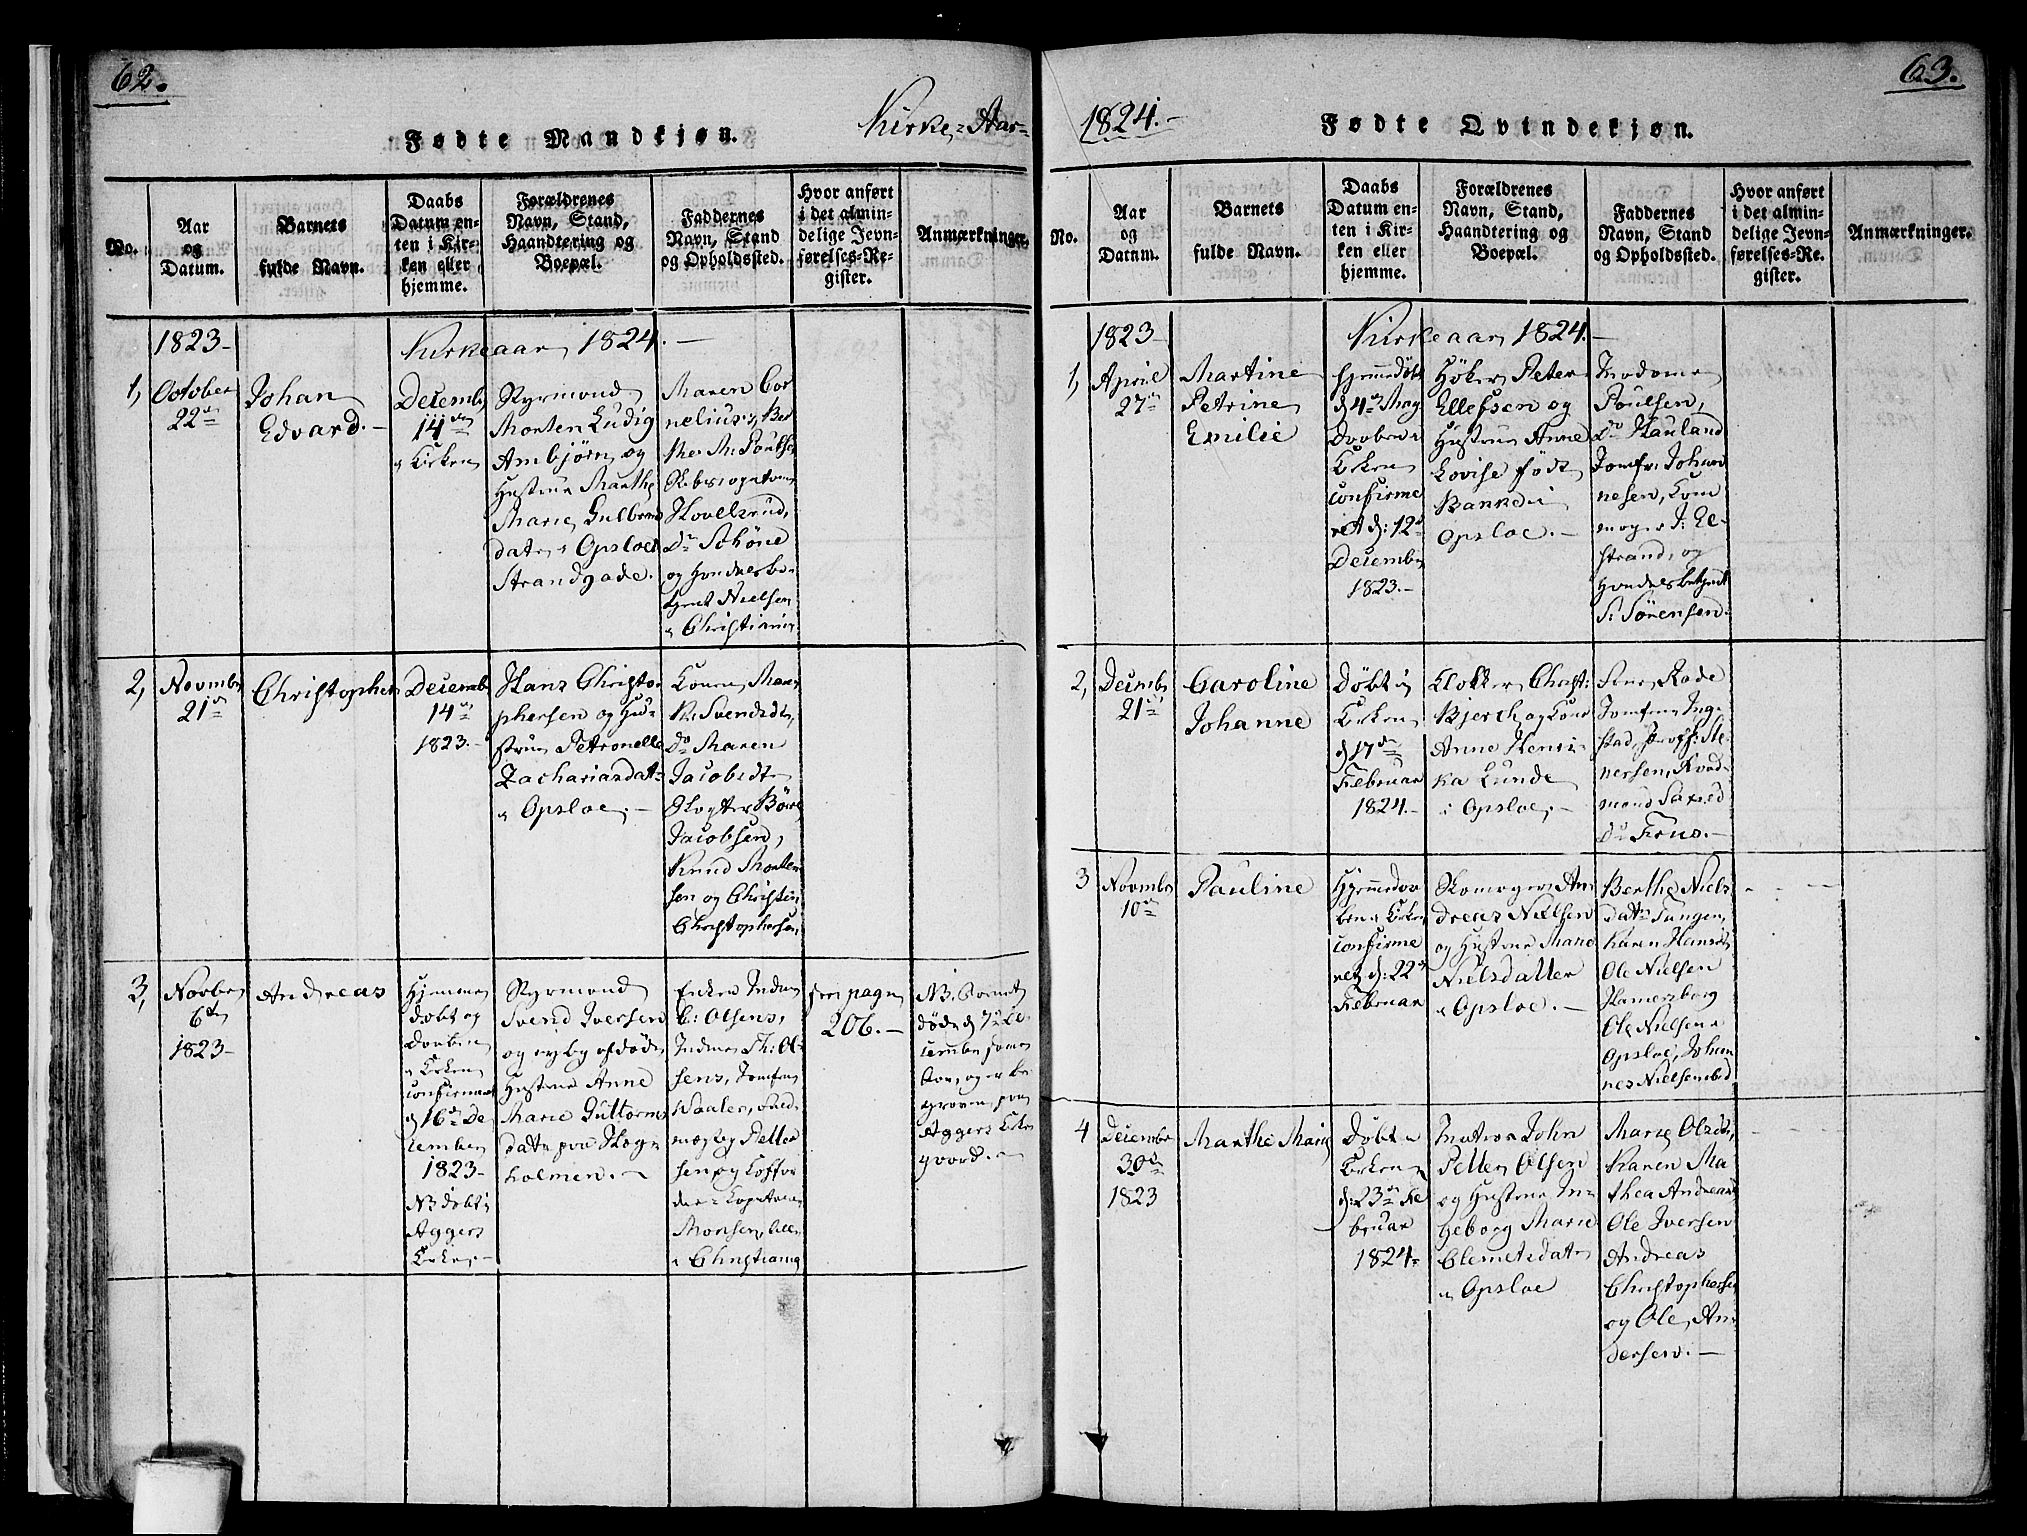 62.
Fødte Mandkjøn.
Kirke-Aar
No.
Aar
og
Datum.
Barnets
fulde Navn.
Daabs
Datum en-
ten i Kir-
ken eller
hjemme.
Forældrenes
Navn, Stand,
Haandtering og
Boepæl.
Faddernes
Navn, Stand
og Opholdssted.
Hvor anført
i det almin-
delige Jevn-
førelses-Re-
gister.
Anmærkninger.
1823-
Kirkeaar 1824.-
1,
October
22de
Johan
Edvard.-
Decembr
14de
i Kirken
Styrmand
Morten Ludvig
Ambjørn og
Hustrue Marthe
Marie Gulbrand
datr i Opsloe
Strandgade.
Maren Cor
nelius,
Hovelsrud,
Dr Schöne
og Handelsbe-
tjent Nielsen
i Christiania
2,
Novembr
21de
Christopher
Decemb
14de
1823.-
Hans Christo
phersen og Hu-
strue Petronelle
Zachariasdat
i Opsloe.-
Konen Mar
Svendsdt,
do Maren
Jacobsdt
Jacobsen,
Knud Morten
sen og Christen
Christophersen
3,
Novbr
6te
1823-
Andreas
Hjemme
døbt og
Daaben
i Kirken
confirmeret
d 16de De
cember
1823-
NB døbt i
Aggers
Kirke.-
Styrmand
Svend Iversen
og nylig afdøde
Hustrue Anne
Marie Guttorms
datr paa Bleg-
holmen.-
Enken Madm
C: Olsens,
Madme Th: Ol-
sens, Jomfru
Waaler, Fuld-
mægtig Petter
sen og Koffar
die-Capt
Monsen, alle
i Christiania
see pagn
206.-
NB, Barnet
døde d 7de De-
cember samme
Aar, og er be
graven paa
Aggers Kirke
gaard.-
63.
1824.-
Fødte Qvindekjøn.
No.
Aar
og
Datum.
Barnets
fulde Navn.
Daabs
Datum en-
ten i Kir-
ken eller
hjemme.
Forældrenes
Navn, Stand,
Haandtering og
Boepæl.
Faddernes
Navn, Stand
og Opholdssted.
Hvor anført
i det almin-
delige Jevn-
førelses-Re-
gister.
Anmærkninger.
1823-
Kirkeaar 1824.-
1,
April
27de
Martine
Petrine
Emilie
hjemmedøbt
d 4de May
Daaben i
Kirken
confirme
ret d: 12te
Decembr
1823.-
Høker Peter
Ellefsen og
Hustrue Anne
Lovise født
Banke i
Opsloe.-
Madame
Poulsen,
do Hauland
Jomfr: Johan
nesen,
strand, og
Handelsbetjent
S: Sörensen.
2,
Decmbr
21de
Caroline
Johanne
Døbt i
Kirken
d 17de
Februar
1824.-
Klokker Christ:
Bjerch og Kone
Anne Henri-
ka Lunde
i Opsloe.-
Jomfrue Ing-
stad, Prof: Ste-
nersen,
3
Novembr
10de
Pauline
Hjemmedaa
ben i Kirken
confirme
ret d: 22de
Februar
Skomager An
dreas Nielsen
og Hustrue Marie
Nielsdatter
i Opsloe.-
Berthe Niels
datr Tangen,
Karen Hansdt,
Ole Nielsen
Hamersborg
Ole Nielsen i
Opsloe, Johan
nes Nielsen ibid
4
Decembr
30de
1823
Marthe Marie
Døbt i
Kirken
d: 23de Fe
bruar
1824-
Matros John
Petter Olsen
og Hustrue In
geborg Marie
Clemetsdatr
i Opsloe
Marie Olsdtr,
Karen Ma
thea Andreas
Ole Iversen
Andreas
Christophersen
og Ole An
dersen.-